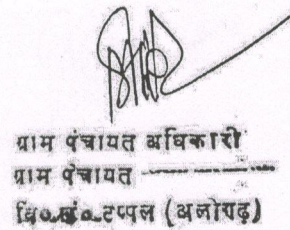 ग्राम पंचायत अधिकारी
ग्राम पंचायत -------------
वि०खं०टप्पल (अलीगढ़)